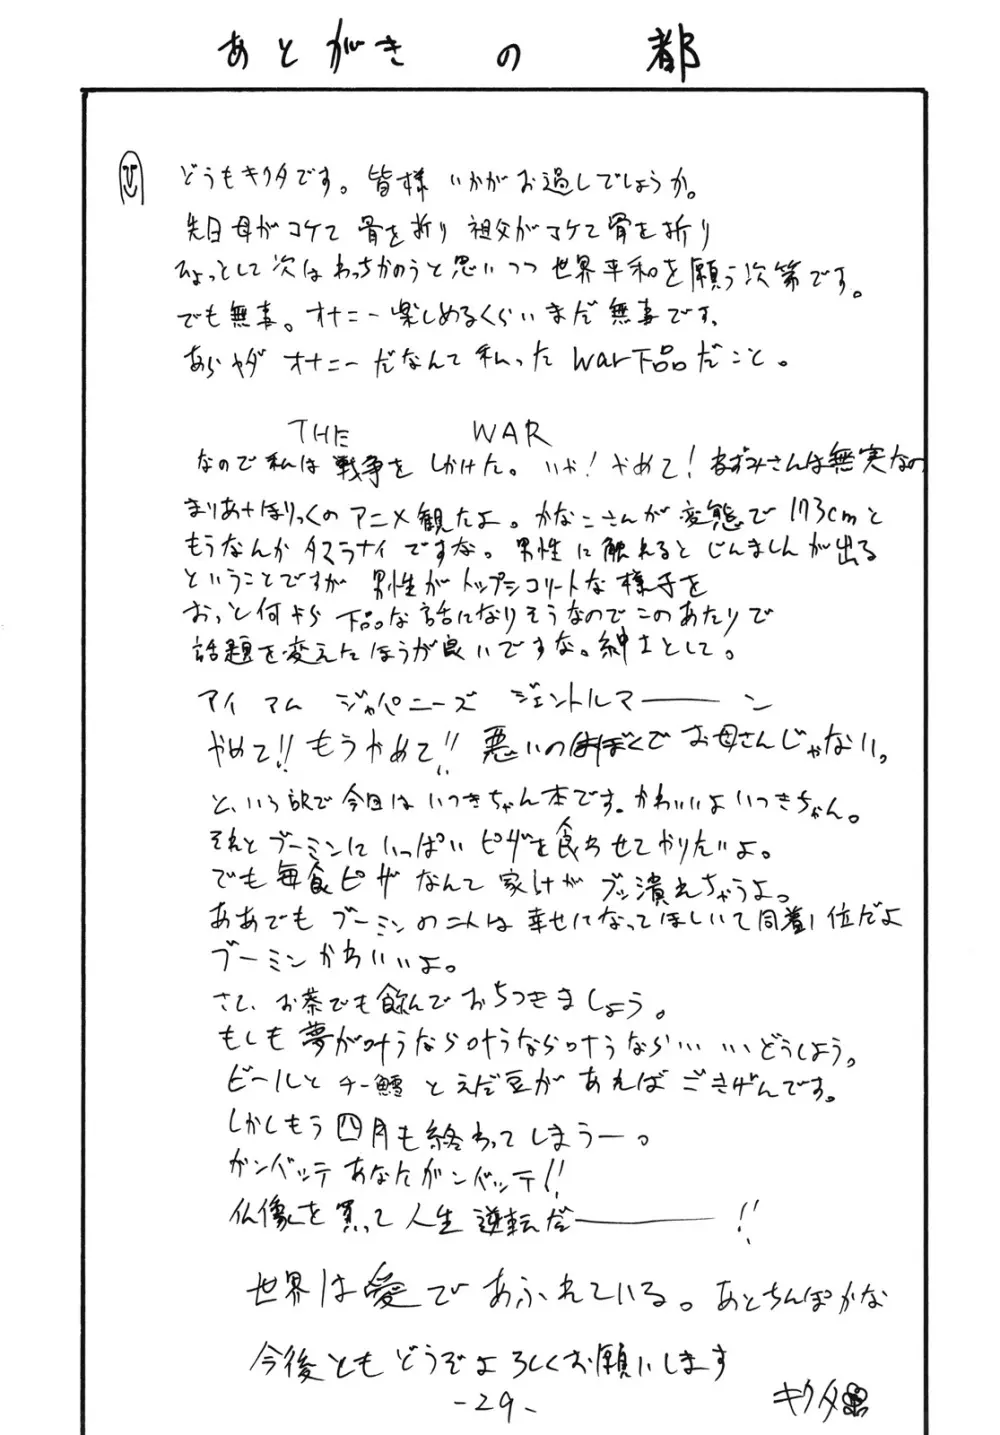 あとがきの都
どうもキクタです。皆様いかがお過しでしょうか。
先日母がコケて骨を折り祖父がコケて骨を折り
ひょっとして次はわっちかのうと思いつつ世界平和を願う次第です。
でも無事。オナニー楽しめるくらいまだ無事です。
あらヤダオナニーだなんて私ったwar下品だこと。
THE WAR
なので私は戦争をしかけた。いや!やめて!ねずみさんは無実なの
まりあ†ほりっくのアニメ観たよ。かなこさんが変態で173cmと
もうなんかタマラナイですな。男性に触れるとじんましんが出る
ということですが男性がトップシコリートな様子を
おっと何やら下品な話になりそうなのでこのあたりで
話題を変えたほうが良いですな。紳士として。
アイ アム ジャパニーズ ジェントルマーーン
やめて!!もうやめて!!悪いのはぼくでお母さんじゃない。
という訳で今日はいつきちゃん本です。かわいいよいつきちゃん。
それとブーミンにいっぱいピザを食わせてやりたいよ。
でも毎食ピザなんて家計がブッ潰れちゃうよっ
ああでもブーミンの二人は幸せになってほしいて同着1位だよ
ブーミンかわいいよ。
さて、お茶でも飲んでおちつきましょう。
もしも夢が叶うなら叶うなら叶うなら……どうしよう。
ビールとチー鱈とえだ豆があればごきげんです。
しかしもう四月も終わってしまうー。
ガンバッテあなたガンバッテ!!
仏像を買って人生逆転だーー!!
世界は愛であふれている。あとちんぽかな
今後ともどうぞよろしくお願いします
-29-
キクタ